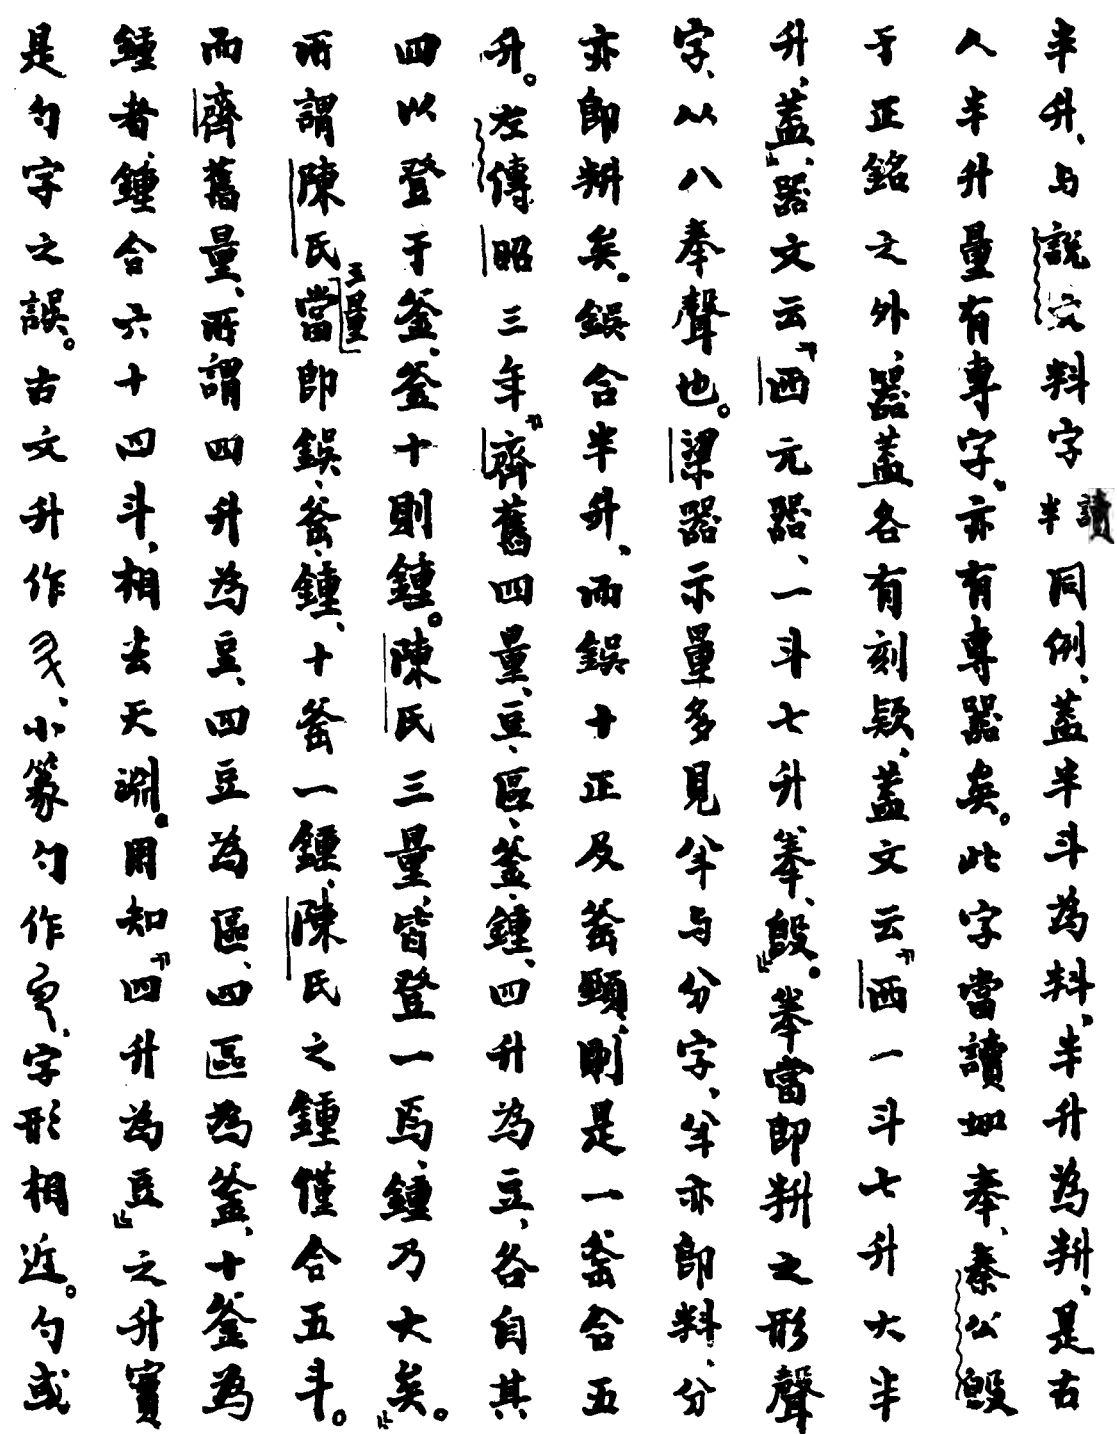 半升、与說文㪵字讀半同例、蓋半斗為㪵、半升為、是古
人半升量有專字、亦有專器矣。此字當讀如奉、秦公𣪘
于正銘之外、器蓋各有刻款、蓋文云『西一斗七升大半
升、蓋』、器文云『西元器、一斗七升、𣪘』。當即之形聲
字、从八奉聲也。梁器示量多見与分字、亦即㪵、分
亦即矣。鋘合半升、而鋘十正及釜頸、則是一釜合五
升。左傳昭三年『齊舊四量、豆、區、釜、鍾、四升為豆、各自其
四以登于釜、釜十則鍾。陳氏三量、皆登一焉、鍾乃大矣。』
所謂陳氏三量當即鋘、釜、鍾、十釜一鍾、陳氏之鍾僅合五斗。
而齊舊量、所謂四升為豆、四豆為區、四區為釜、十釜為
鍾者、鍾合六十四斗、相去天淵。用知『四升為豆』之升實
是勺字之誤。古文升作、小篆勺作、字形相近。勺或